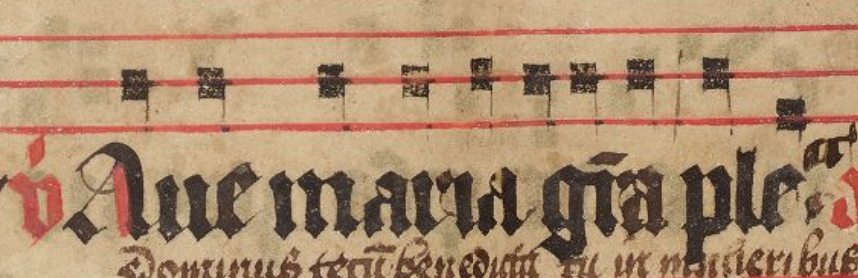 v Aue maria gr̄a ple
Dominus tecū benedicta tu in mulieribus